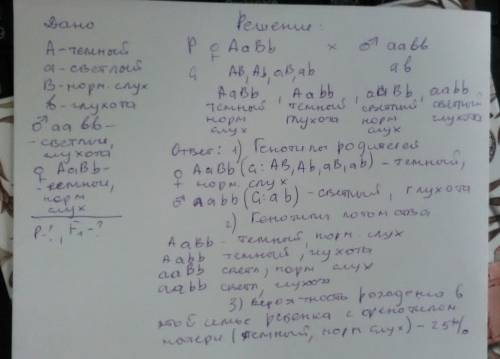 Дано
А-темный
а-светлый
В-норм. слух
в-глухота
♂ аа вв-
-светлый,
глухота
♀ АаВв-
-темный,
норм
слух
P-?, F₁-?
Решение:
P ♀ АаВв × ♂ аавв
G АВ, Ав, аВ, ав ав
АаВв, Аавв, ааВв, аавв
темный темный светлый светлый
норм глухота норм глухота
слух слух
Ответ: 1) Генотипы родителей
♀ АаВв (G: АВ, Ав, аВ, ав) - темный,
норм. слух
♂ Аавв (G: ав) - светлый, глухота
2) Генотипы потомства
АаВв - темный, норм. слух
Аавв темный, глухота
ааВв светл, норм слух
аавв светл, глухота
3) вероятность рождения в
этой семье ребенка с фенотипом
матери (темный, норм слух) - 25%